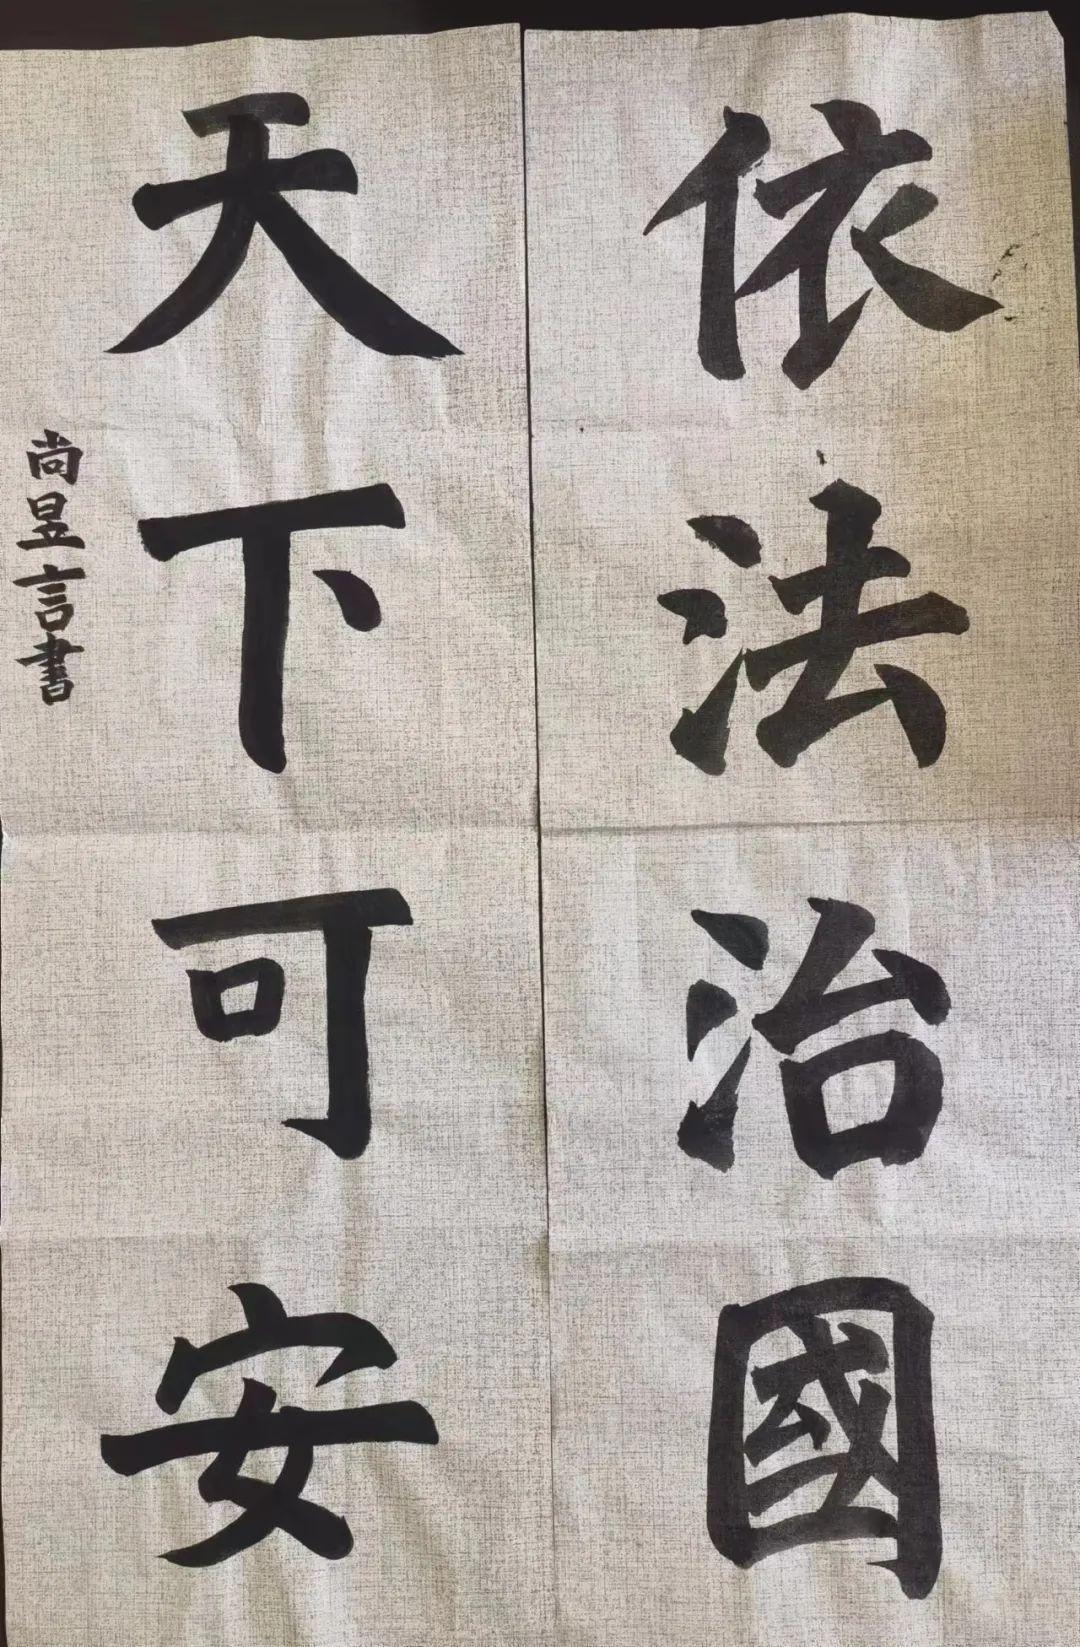 依法治國
天下可安
尚昱言書